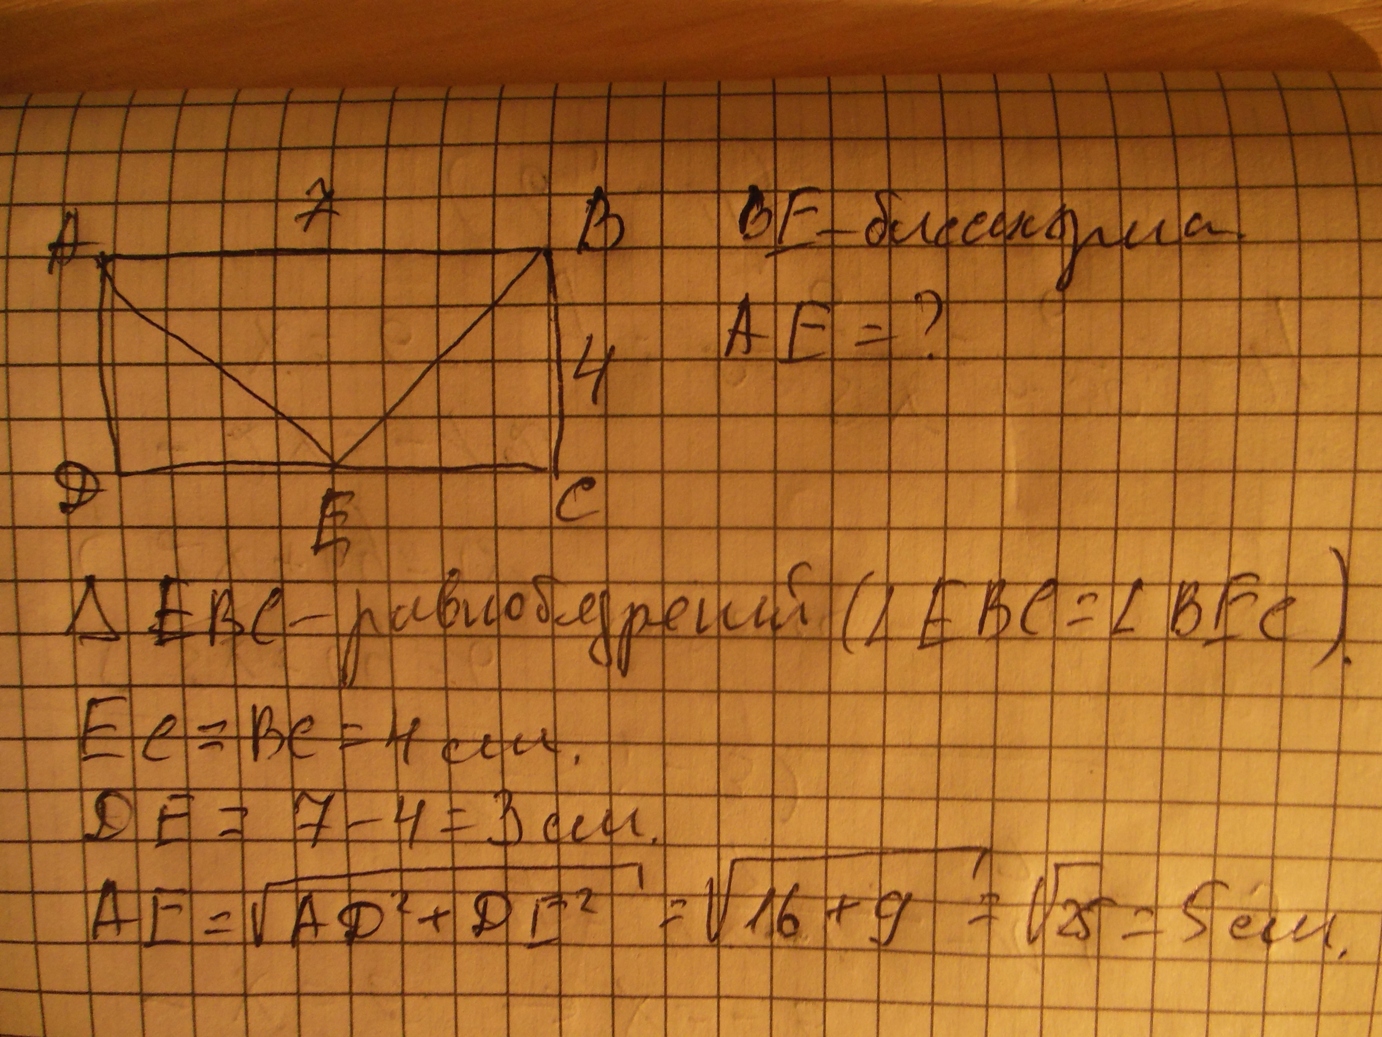 7
A
B
BE - биссектриса.
4
AE = ?
D
E
C
Δ EBC - равнобедрений (∠ EBC = ∠ BEC).
EC = BC = 4 см.
DE = 7 - 4 = 3 см.
AE = √AD² + DE² = √16 + 9 = √25 = 5 см.